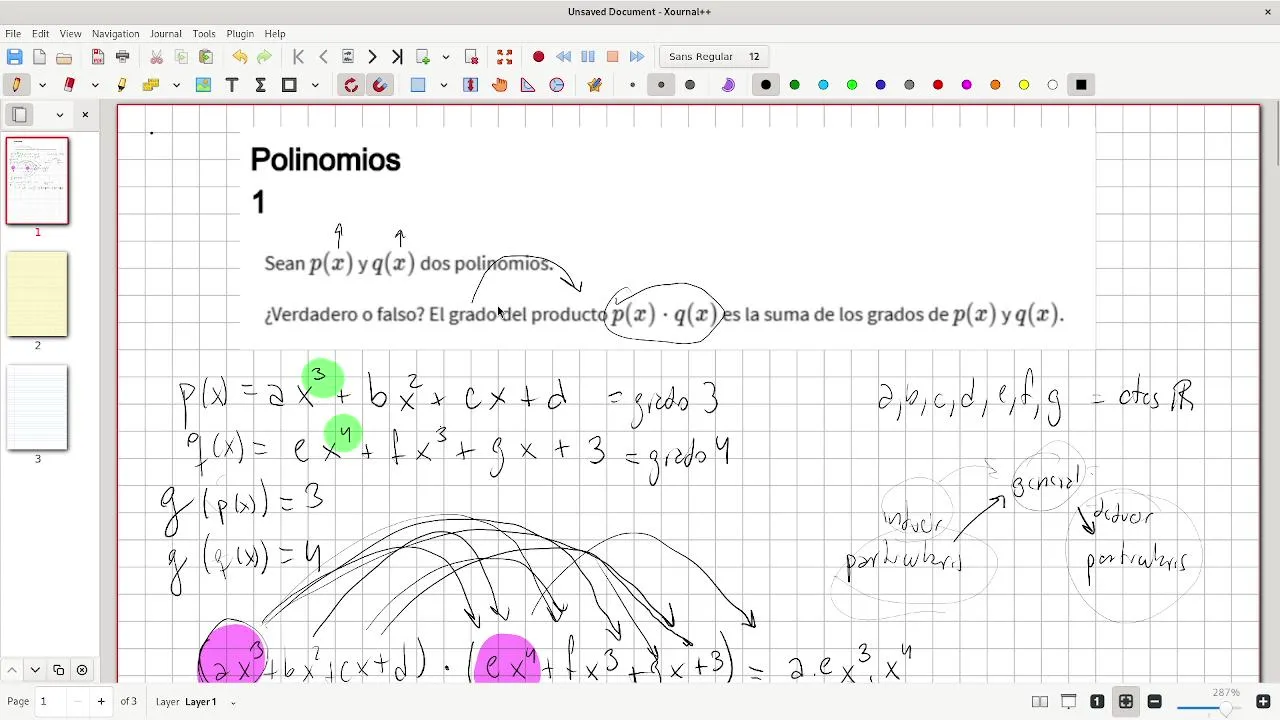 Unsaved Document - Xournal++
File Edit View Navigation Journal Tools Plugin Help
Sans Regular 12
Polinomios
1
Sean p(x) y q(x) dos polinomios.
¿Verdadero o falso? El grado del producto p(x) · q(x) es la suma de los grados de p(x) y q(x).
p(x) = ax³ + bx² + cx + d = grado 3
a, b, c, d, e, f, g = ctes ℝ
q(x) = ex⁴ + fx³ + gx + 3 = grado 4
g (p(x)) = 3
general
inducir
deducir
g (q(x)) = 4
particulares
particulares
(ax³+bx²+cx+d) · (ex⁴+fx³+gx+3) = a.e x³. x⁴
1
2
3
Page 1 of 3 Layer Layer 1
287%